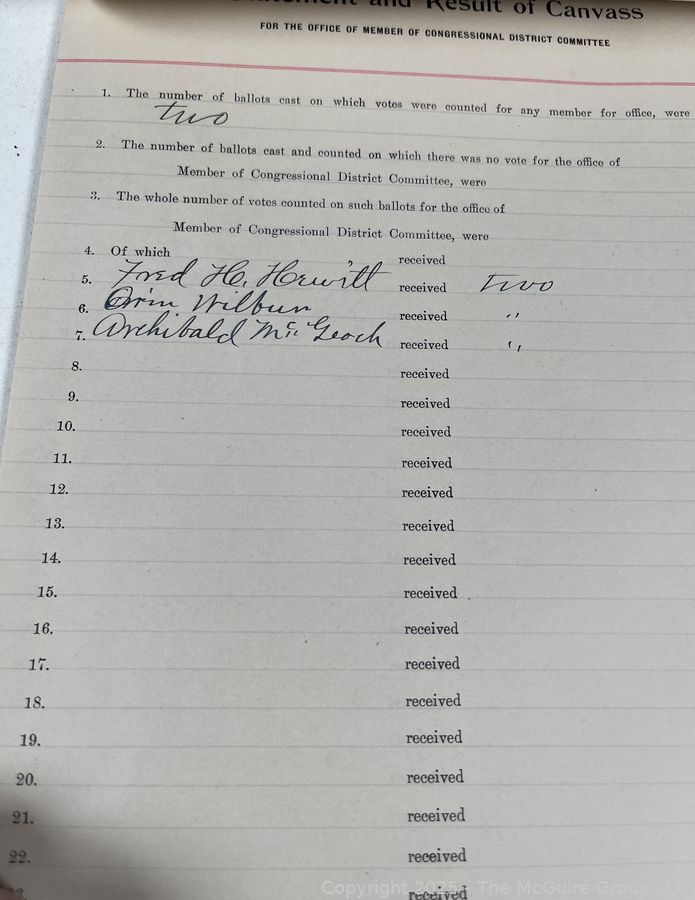 Statement and Result of Canvass
FOR THE OFFICE OF MEMBER OF CONGRESSIONAL DISTRICT COMMITTEE
1. The number of ballots cast on which votes were counted for any member for office, were
two
2. The number of ballots cast and counted on which there was no vote for the office of
Member of Congressional District Committee, were
3. The whole number of votes counted on such ballots for the office of
Member of Congressional District Committee, were
4. Of which received
5. Fred H. Hewitt received two
6. Orrin Wilbur received "
7. Archibald McGeoch received "
8. received
9. received
10. received
11. received
12. received
13. received
14. received
15. received
16. received
17. received
18. received
19. received
20. received
21. received
22. received
23. received
Copyright 2025 The McGuire Group LLC